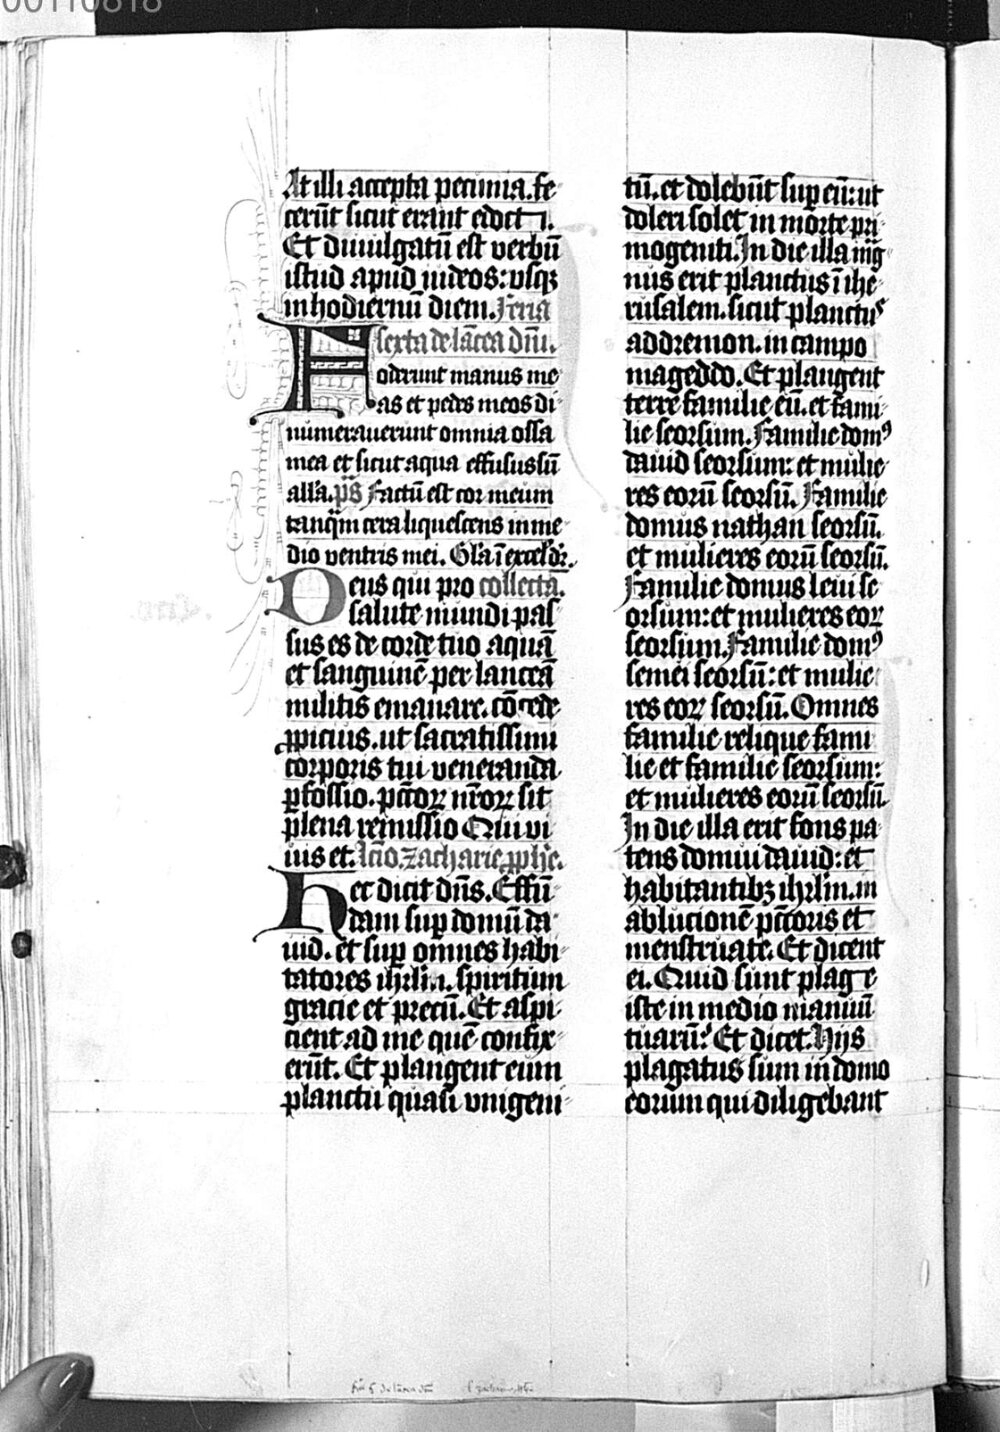 00110818
At illi accepta pecunia. fe-
cerūt sicut erant edocti.
Et diuulgatū est verbū
istud apud iudeos: vsqꝫ
in hodiernū diem. Feria
sexta de lācea dn̄i.
Foderunt manus me-
as et pedes meos di-
numerauerunt omnia ossa
mea et sicut aqua effusus sū
all'a. p̄s Factū est cor meum
tanqͣm cera liquescens in me-
dio ventris mei. Gl'a ī excel'
Deus qui pro collecta.
salute mundi pas-
sus es de corde tuo aquā
et sanguinē per lanceā
militis emanare. cōcede
ꝓpicius. ut sacratissimi
corporis tui veneranda
ꝑfossio. pctōꝝ nr̄oꝝ sit
plena remissio Qui vi-
uis et. Lc̄io. zacharie ꝓph̄e.
Hec dicit dn̄s. Effū-
dam suꝑ domū da-
uid. et suꝑ om̄nes habi-
tatores ihrl̄m. spiritum
gracie et precū. Et aspi-
cient ad me quē confix-
erūt. Et plangent eum
planctu quasi vnigeni-
tū. et dolebūt suꝑ eū: ut
doleri solet in morte pri-
mogeniti. In die illa mͣg-
nus erit planctus ī ihe-
rusalem. sicut planctꝰ
addremon. in campo
mageddo. Et plangent
terre familie eū. et fami-
lie seorsum. Familie domꝰ
dauid seorsum: et mulie-
res eorū seorsū. Familie
domus nathan seorsū.
et mulieres eorū seorsū.
Familie domus leui se-
orsum: et mulieres eoꝝ
seorsum. Familie domꝰ
semei seorsū: et mulie-
res eoꝝ seorsū. Omnes
familie relique fami-
lie et familie seorsum:
et mulieres eorū seorsū.
In die illa erit fons pa-
tens domui dauid: et
habitantibꝫ ihrl̄m. in
ablucionē pctōris et
menstruate. Et dicent
ei. Quid sunt plage
iste in medio manuū
tuarū? Et dicet. Hijs
plagatus sum in domo
eorum qui diligebant